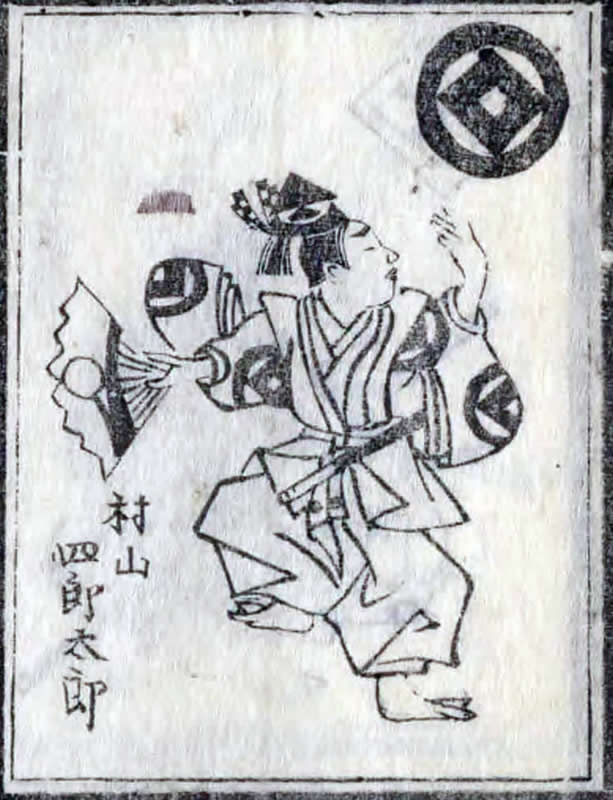 村山
四郎太郎